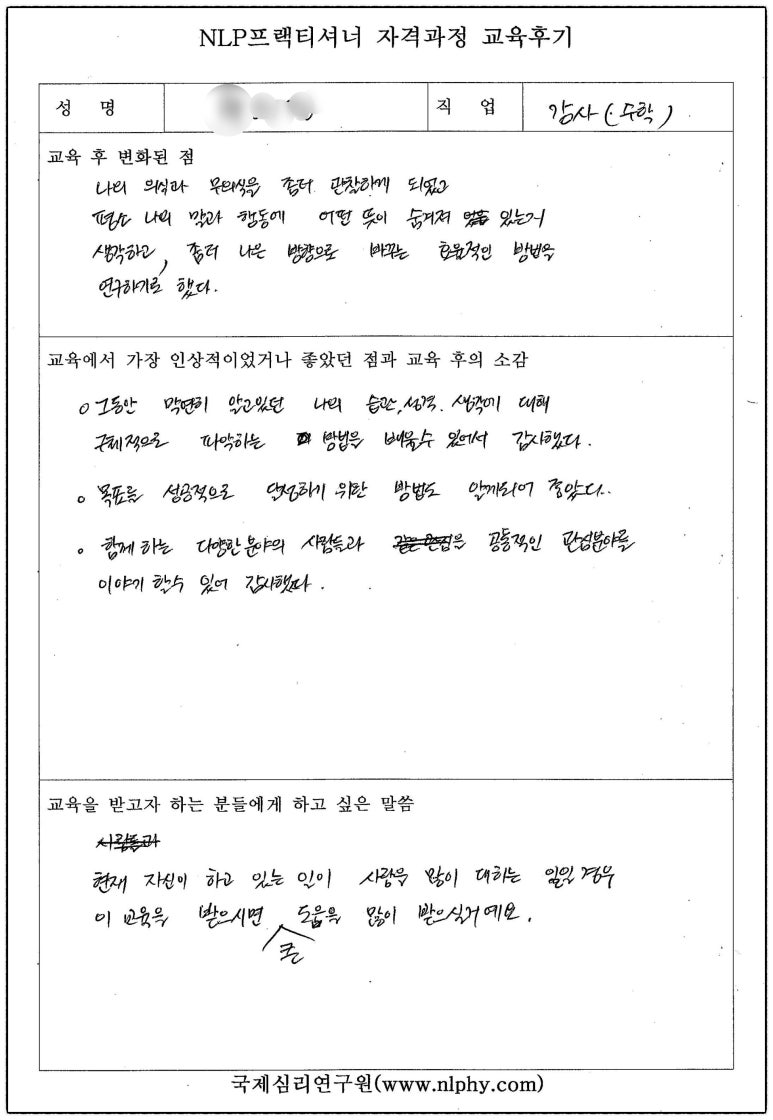 NLP프랙티셔너 자격과정 교육후기
성 명
직 업 강사(수학)
교육 후 변화된 점
나의 의식과 무의식을 좀더 관찰하게 되었고
평소 나의 말과 행동에 어떤 뜻이 숨겨져 있는거
생각하고, 좀더 나은 방향으로 바꾸는 효율적인 방법을
연구하기로 했다.
교육에서 가장 인상적이었거나 좋았던 점과 교육 후의 소감
o 그동안 막연히 알고있던 나의 습관, 성격, 생각에 대해
구체적으로 파악하는 방법을 배울수 있어서 감사했다.
o 목표를 성공적으로 달성하기 위한 방법도 알게되어 좋았다.
o 함께 하는 다양한 분야의 사람들과 공통적인 관심분야를
이야기 할수 있어 감사했다.
교육을 받고자 하는 분들에게 하고 싶은 말씀
사람들과
현재 자신이 하고 있는 일이 사람을 많이 대하는 일일 경우
이 교육을 받으시면 큰 도움을 많이 받으실거예요.
국제심리연구원(www.nlphy.com)